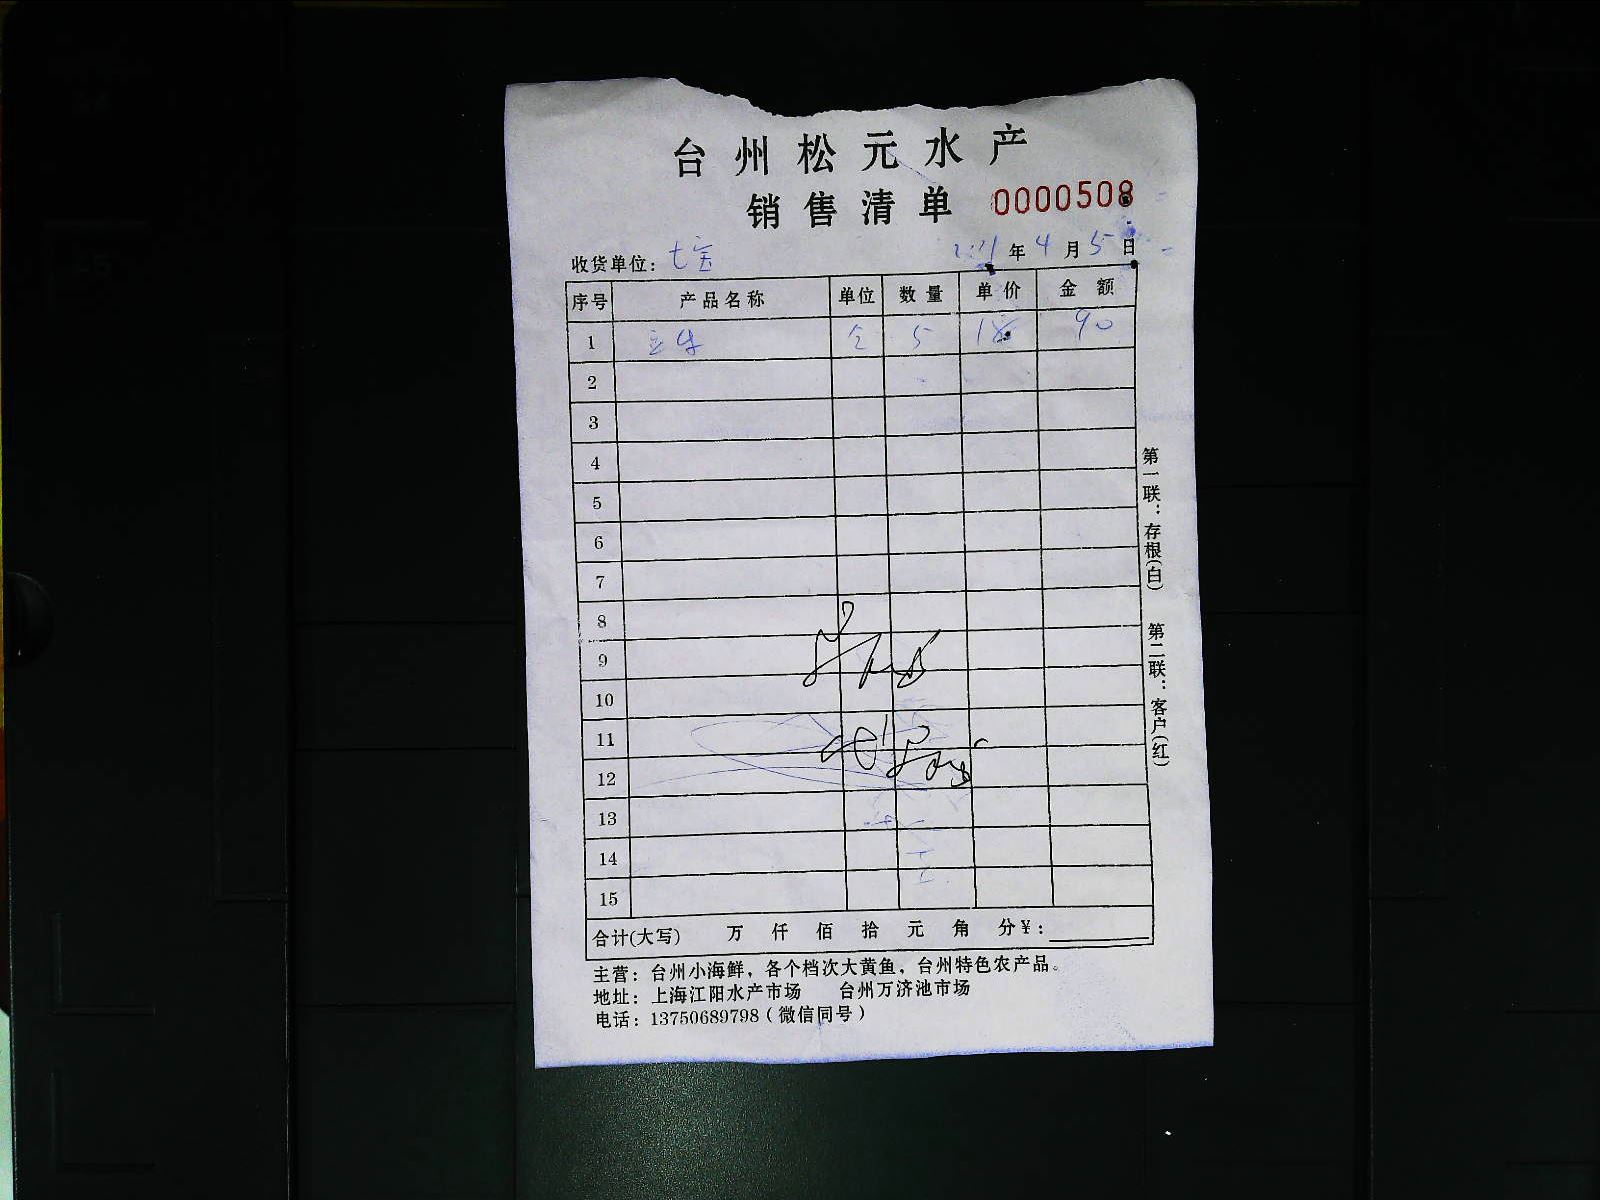 台州松元水产
销售清单 0000508
收货单位：七宝 2021年4月5日
序号 产品名称 单位 数量 单价 金额
1 5 18 90
2
3
4
5
6
7
8
9
10
11
12
13
14
15
合计(大写) 万 仟 佰 拾 元 角 分¥：
主营：台州小海鲜，各个档次大黄鱼，台州特色农产品。
地址：上海江阳水产市场 台州万济池市场
电话：13750689798（微信同号）
第一联：存根(白) 第二联：客户(红)